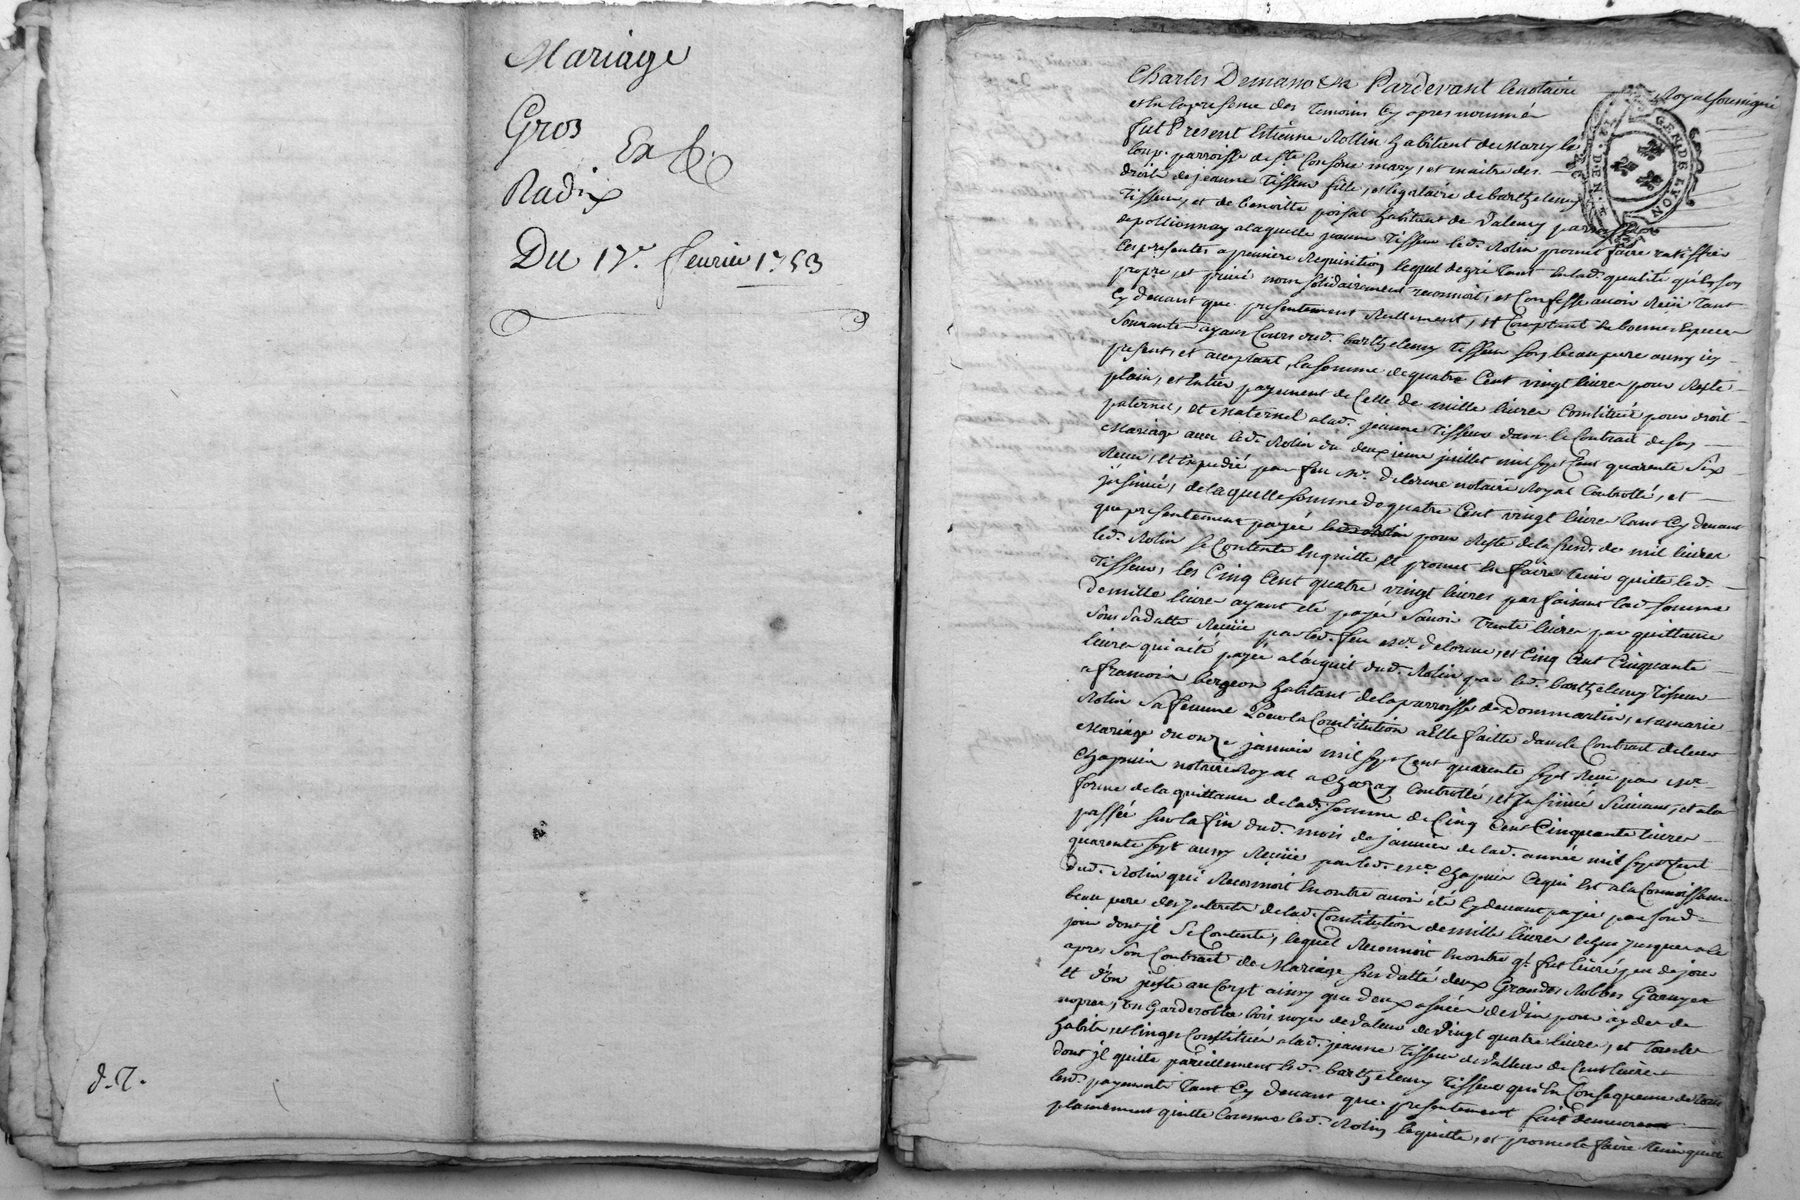 Mariage
Gros
Ex
Radix
Du 17e. feurier 1753
d. T.
Charles Demano Pardevant le notaire Royal soussigné
et en la presence des temoins cy apres nommés
fut Present Estienne Rollin habitant de Marcy le
Loup parroisse de Ste. Consorce mary, et maitre des
droits de jeanne Tisseur fille, et legataire de barthelemy
Tisseur, et de benoitte habitant de Valency parroisse
de pollionnay a laquelle jeanne Tisseur led. Rolin promet faire ratiffier
les presentes a premiere Requisition, lequel degré tant en lad. qualité qu'en son
propre, et privé nom solidairement reconnoit, et confesse auoir Reçu tant
cy deuant que presentement Reellement, et comptant en bonnes Especes
Sonnantes ayant cours dud. barthelemy Tisseur son beau pere aussy icy
present, et acceptant, la somme de quatre Cent vingt liures pour Reste
plain, et Entier payement de Celle de mille liures Constituée pour droit
paternel, et Maternel a lad. jeanne Tisseur dans le Contrait de son
Mariage auec led. Rolin du deuxieme juillet mil sept Cent quarente six
Receu, et Expedié par feu Mr. delorme notaire Royal Controllé, et
jnsinué, de laquelle somme de quatre Cent vingt liures tant cy deuant
que presentement payée pour Reste de la susd. de mil liures
led. Rolin se Contente En quitte et promet En faire tenir quitte led.
Tisseur, les Cinq Cent quatre vingt liures parfaisant lad. somme
de mille liures ayant été payée Sauoir Trente liures par quittance
Sous sa datte Reçüe par led. feu Mr. delorme, et Cinq Cent Cinquante
liures qui a été payée a l'acquit dud. Rolin par led. barthelemy Tisseur
a francois bergeon habitant de la parroisse de Dommartin, et a marie
Rolin Sa femme pour la Constitution a Elle faitte dans le Contrait de leur
Mariage du onze januier mil sept Cent quarente sept Reçu par Mr.
Chapuis notaire Royal a Chazay Controllé, et Jnsinué Suiuant, et a la
forme de la quittance de lad. somme de Cinq Cent Cinquante liures
passée sur la fin dud. mois de januier de lad. année mil sept Cent
quarente sept aussy Reçüe par led. Me. Chapuis Ce qui est a la Connoissance
dud. Rolin qui Reconnoit En outre auoir été cy deuant payé par sond.
beau pere des Jnterets de lad. Constitution de mille liures Echus jusques a le
jour dont jl Se Contente, lequel Reconnoit En outre qt. fut liuré peu de jours
apres Son Contrait de Mariage sus datté deux Grandes Robbes
et d'un juste au Corps ainsy que deux asnées de vin pour ayder
nopces, un Garderobbe bois noyer de valeur de Vingt quatre liures, et toutes
habits, et linges Constitués a lad. jeanne Tisseur de valleur de Cent liures
dont jl quitte pareillement led. barthelemy Tisseur qui En Consequence de tous
lesd. payements tant Cy deuant que presentement fait demeurent
plainement quitte Comme led. Rolin le quitte, et promet le faire tenir quitte
GEN. DE LYON